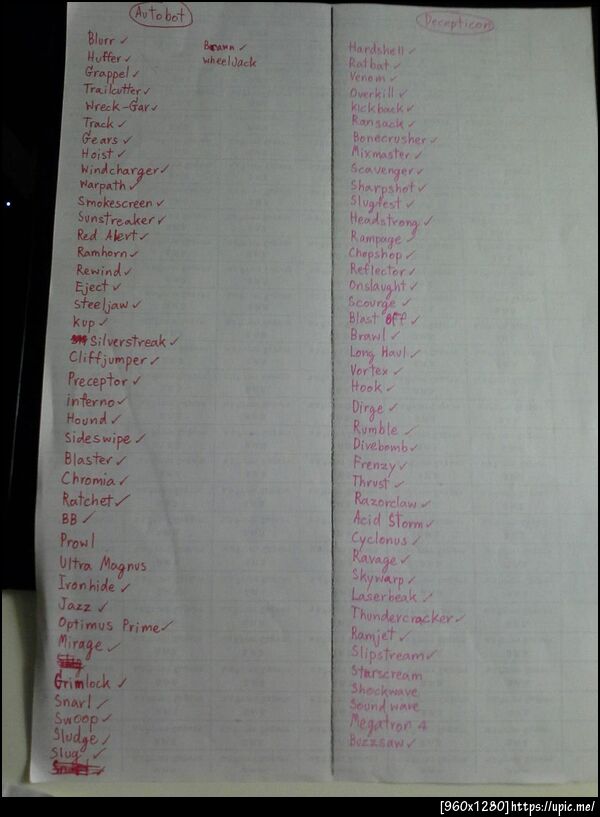 Autobot
Blurr ✓
Huffer ✓
Grappel ✓
Trailcutter ✓
Wreck-Gar ✓
Track ✓
Gears ✓
Hoist ✓
Windcharger ✓
Warpath ✓
Smokescreen ✓
Sunstreaker ✓
Red Alert ✓
Ramhorn ✓
Rewind ✓
Eject ✓
Steeljaw ✓
Kup ✓
Silverstreak ✓
Cliffjumper ✓
Preceptor ✓
inferno ✓
Hound ✓
Sideswipe ✓
Blaster ✓
Chromia ✓
Ratchet ✓
BB ✓
Prowl
Ultra Magnus
Ironhide ✓
Jazz ✓
Optimus Prime ✓
Mirage ✓
Grimlock ✓
Snarl ✓
Swoop ✓
Sludge ✓
Slug ✓
✓
Brawn ✓
wheeljack
Decepticon
Hardshell ✓
Ratbat ✓
Venom ✓
Overkill ✓
Kickback ✓
Ransack ✓
Bonecrusher ✓
Mixmaster ✓
Scavenger ✓
Sharpshot ✓
Slugfest ✓
Headstrong ✓
Rampage ✓
Chopshop ✓
Reflector ✓
Onslaught ✓
Scourge ✓
Blast Off ✓
Brawl ✓
Long Haul ✓
Vortex ✓
Hook ✓
Dirge ✓
Rumble ✓
Divebomb ✓
Frenzy ✓
Thrust ✓
Razorclaw ✓
Acid Storm ✓
Cyclonus ✓
Ravage ✓
Skywarp ✓
Laserbeak ✓
Thundercracker ✓
Ramjet ✓
Slipstream ✓
Starscream
Shockwave
Sound wave
Megatron
Buzzsaw ✓
[960x1280]https://upic.me/